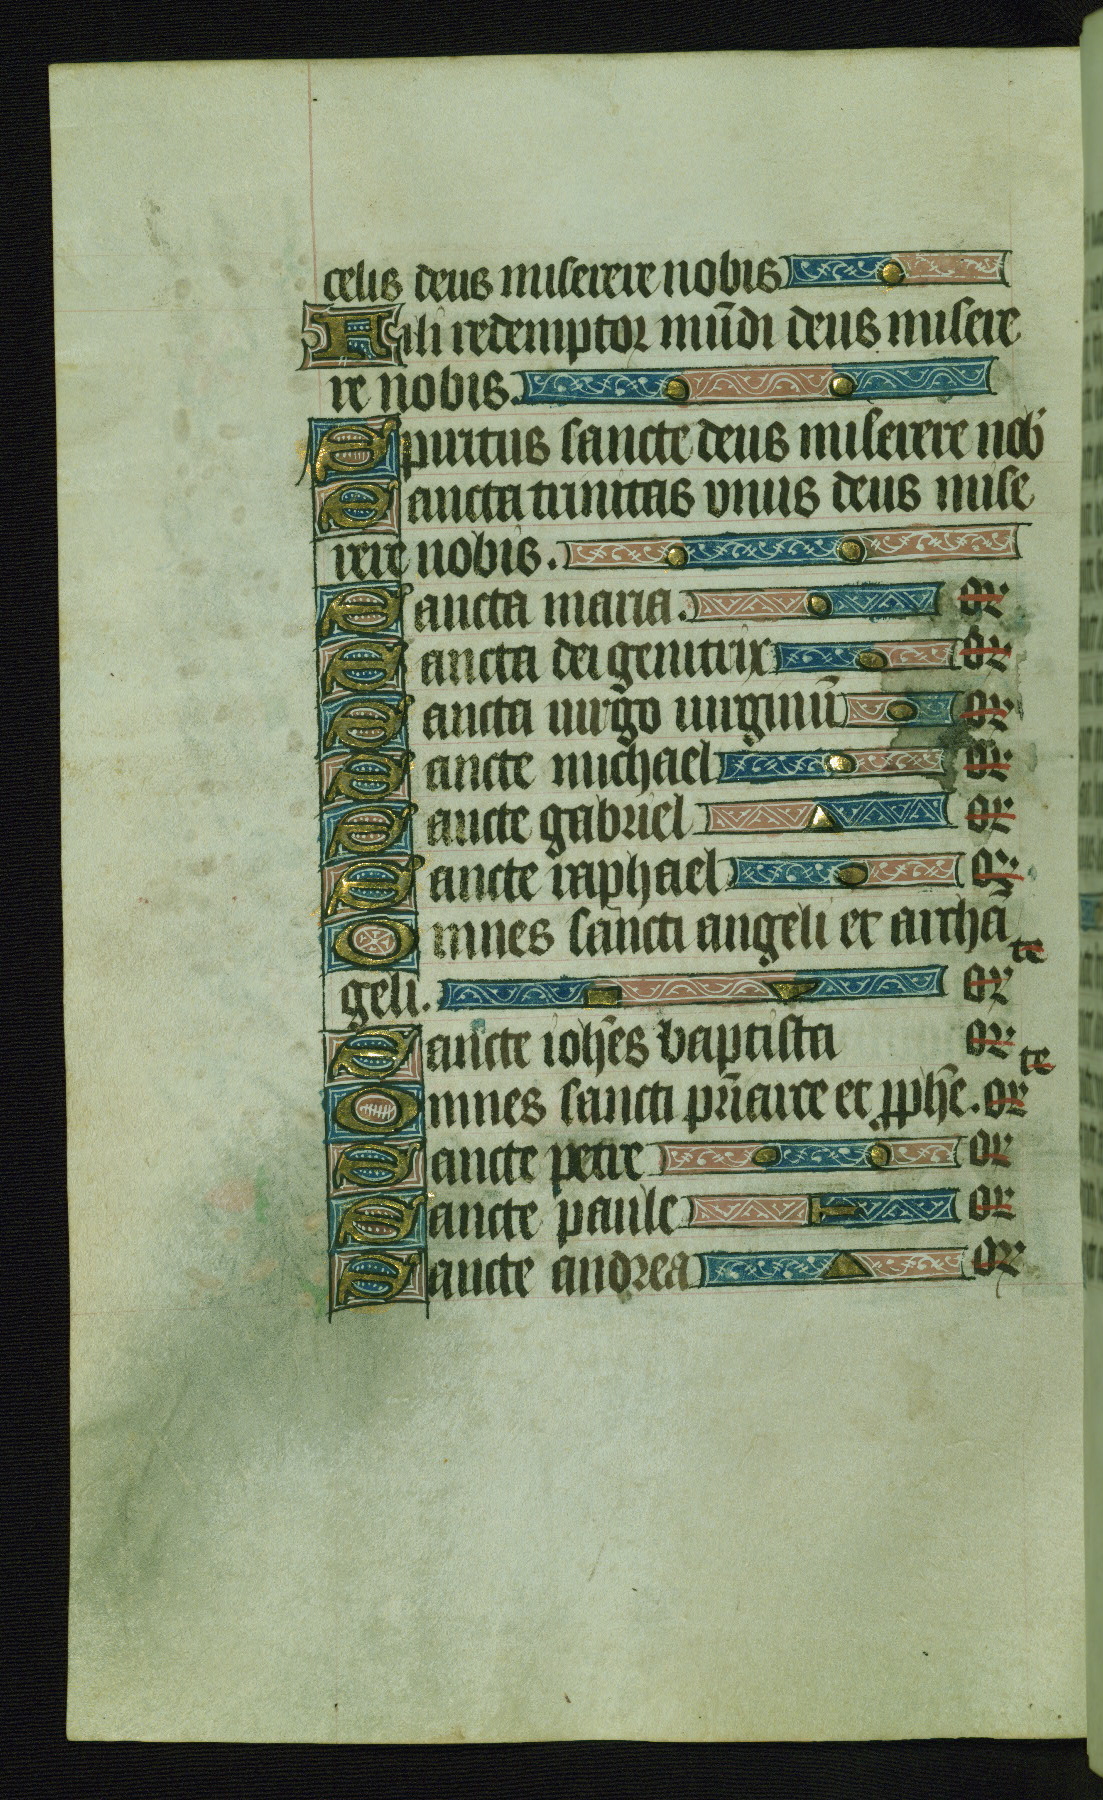 celis deus miserere nobis
Fili redemptor mu̅di deus misere
re nobis.
Spiritus sancte deus miserere nob'
Sancta trinitas vnus deus mise
rere nobis.
Sancta maria. or
Sancta dei genitrix or
Sancta uirgo uirginu̅ or
Sancte michael or
Sancte gabriel or
Sancte raphael or
Omnes sancti angeli et archa̅
geli. or te
Sancte ioh̅es baptista or
Omnes sancti pri̅arce et pph̅e. or te
Sancte petre or
Sancte paule or
Sancte andrea or